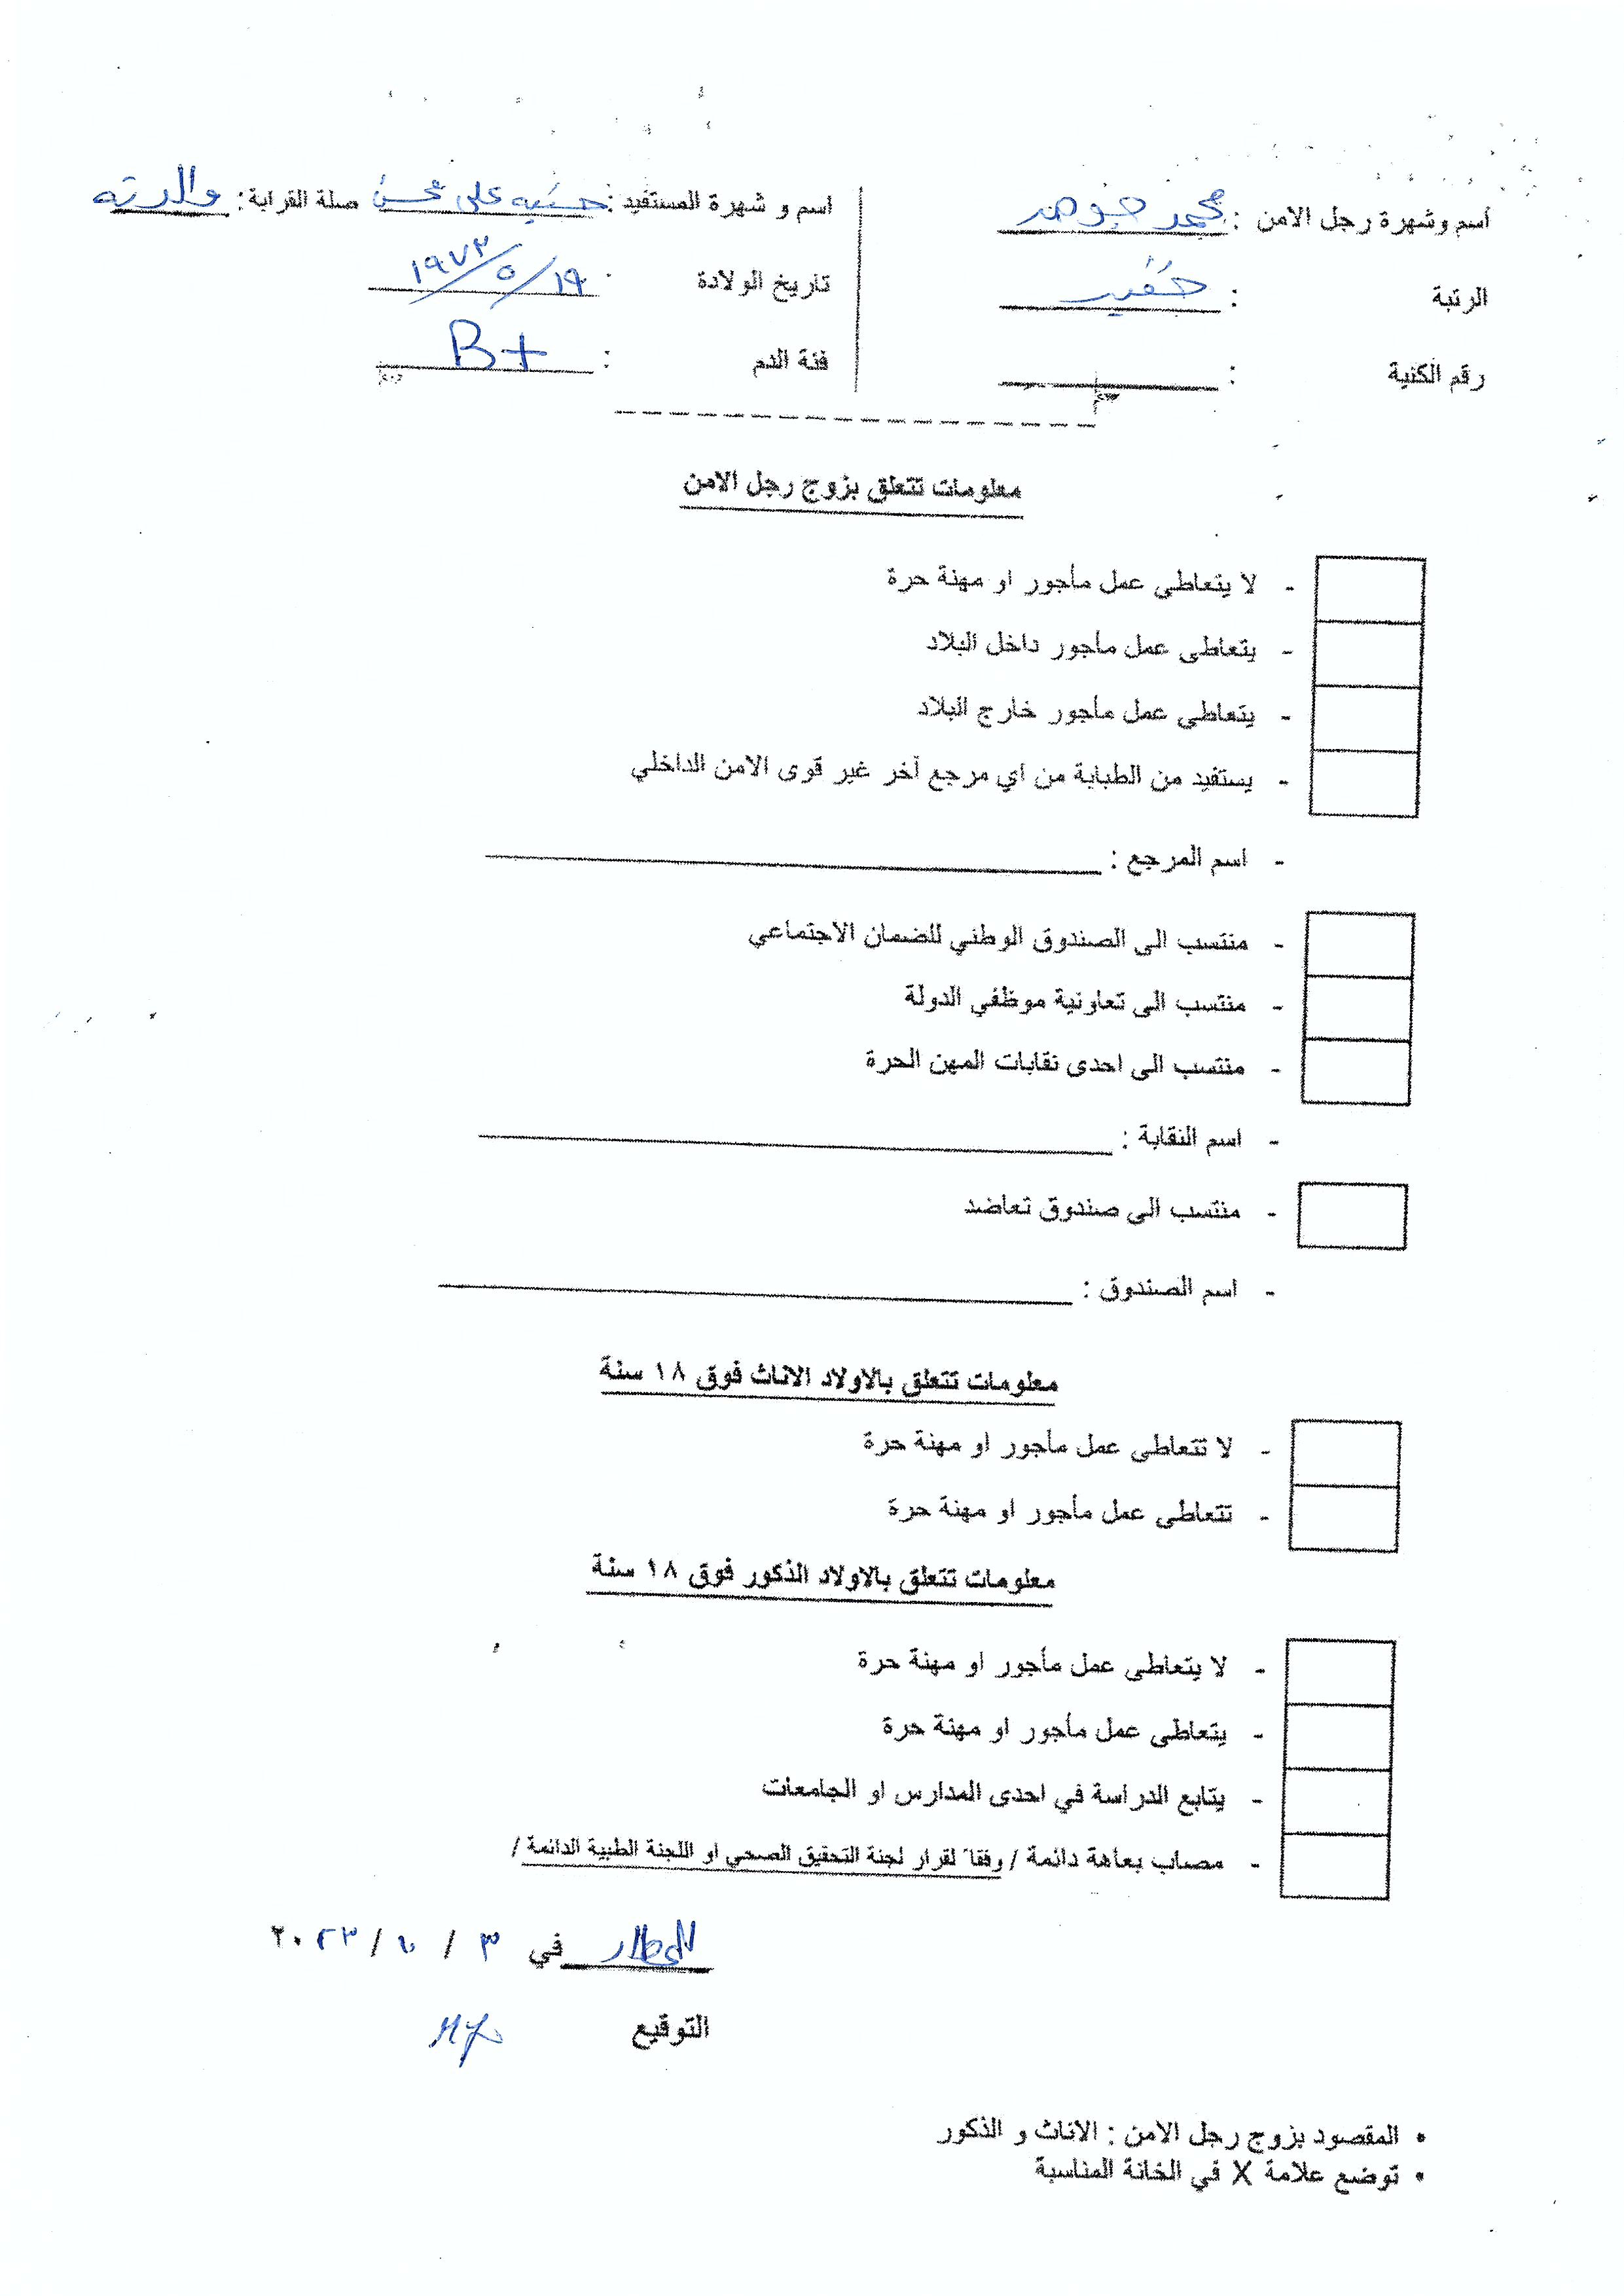 اسم وشهرة رجل الامن : محمد جوهر
الرتبة : خفير
رقم الكنية :
اسم و شهرة المستفيد : حسنيه علي محسن صلة القرابة : والدته
تاريخ الولادة : ١٩/٥/١٩٧٣
فئة الدم : B+
معلومات تتعلق بزوج رجل الامن
- لا يتعاطى عمل مأجور او مهنة حرة
- يتعاطى عمل مأجور داخل البلاد
- يتعاطى عمل مأجور خارج البلاد
- يستفيد من الطبابة من اي مرجع آخر غير قوى الامن الداخلي
- اسم المرجع :
- منتسب الى الصندوق الوطني للضمان الاجتماعي
- منتسب الى تعاونية موظفي الدولة
- منتسب الى احدى نقابات المهن الحرة
- اسم النقابة :
- منتسب الى صندوق تعاضد
- اسم الصندوق :
معلومات تتعلق بالاولاد الاناث فوق ١٨ سنة
- لا تتعاطى عمل مأجور او مهنة حرة
- تتعاطى عمل مأجور او مهنة حرة
معلومات تتعلق بالاولاد الذكور فوق ١٨ سنة
- لا يتعاطى عمل مأجور او مهنة حرة
- يتعاطى عمل مأجور او مهنة حرة
- يتابع الدراسة في احدى المدارس او الجامعات
- مصاب بعاهة دائمة / وفقاً لقرار لجنة التحقيق الصحي او اللجنة الطبية الدائمة /
في ٣ / ١٠ / ٢٠٢٣
التوقيع
• المقصود بزوج رجل الامن : الاناث و الذكور
• توضع علامة X في الخانة المناسبة